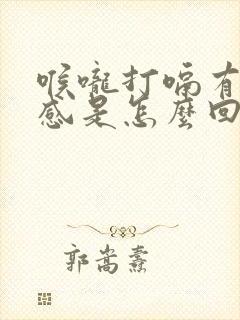 喉嚨打嗝有
感是怎麼回
郭嵩燾